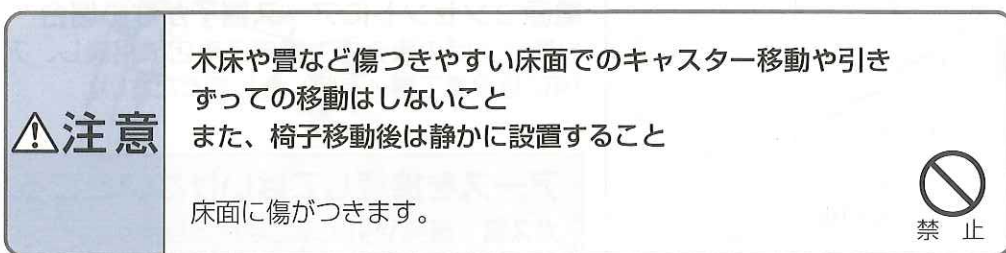 ⚠注意
木床や畳など傷つきやすい床面でのキャスター移動や引き
ずっての移動はしないこと
また、椅子移動後は静かに設置すること
床面に傷がつきます。
禁 止